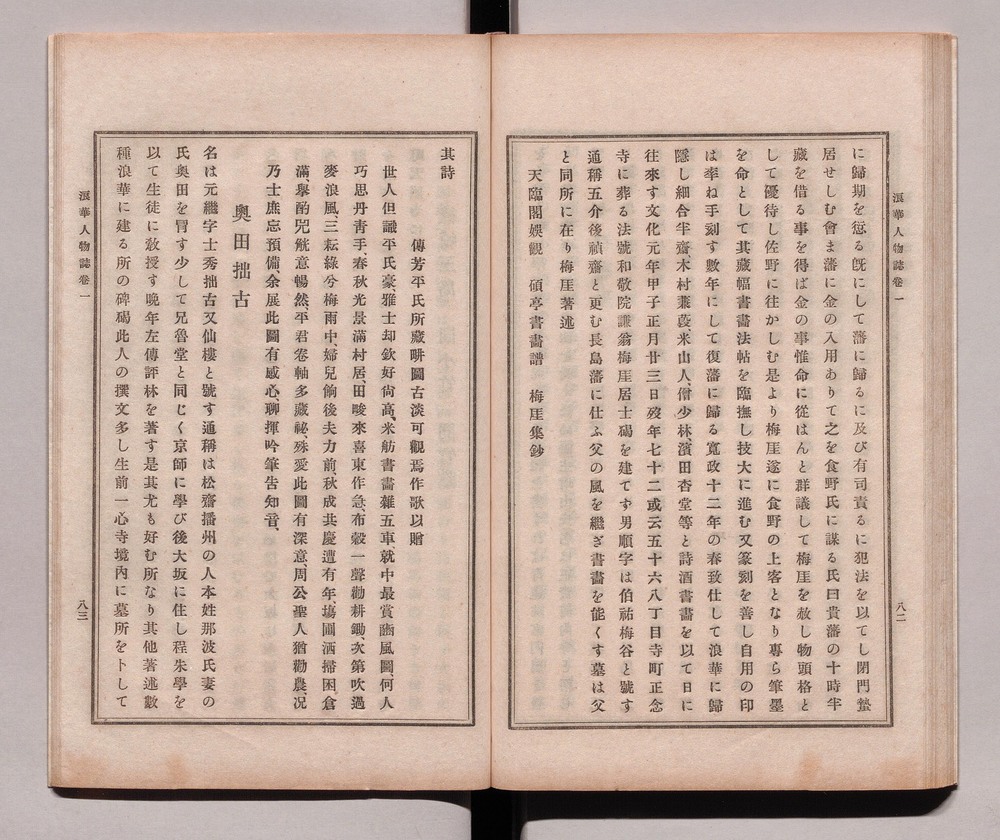 浪華人物誌卷一
八二
に歸期を愆る旣にして藩に歸るに及び有司責るに犯法を以てし閉門蟄
居せしむ會ま藩に金の入用ありて之を食野氏に謀る氏曰貴藩の十時半
藏を借る事を得ば金の事惟命に從はんと群議して梅厓を赦し物頭格と
して優待し佐野に往かしむ是より梅厓遂に食野の上客となり專ら筆墨
を命として其藏幅書畫法帖を臨撫し技大に進む又篆刻を善し自用の印
は率ね手刻す數年にして復藩に歸る寬政十二年の春致仕して浪華に歸
隱し細合半齋、木村蒹葭、米山人、僧少林、濱田杏堂等と詩酒書畫を以て日に
往來す文化元年甲子正月廿三日歿年七十二或云五十六八丁目寺町正念
寺に葬る法號和敬院謙翁梅厓居士碣を建てす男順字は伯祐梅谷と號す
通稱五介後禎齋と更む長島藩に仕ふ父の風を繼ぎ書畫を能くす墓は父
と同所に在り梅厓著述
天臨閣娛觀　碩亭書畫譜　梅厓集鈔
其詩
傳芳平氏所藏畊圖古淡可觀焉作歌以贈
世人但識平氏豪雅士却欽好尙高、米舫書畫雜五車、就中最賞豳風圖、何人
巧思丹靑手、春秋光景滿村居、田畯來喜東作急、布穀一聲勸耕鋤、次第吹過
麥浪風、三耘綠兮梅雨中、婦兒餉後夫力前、秋成共慶遭有年塲圃洒掃囷倉
滿、擧酌兕觥意暢然、平君卷軸多藏祕、殊愛此圖有深意、周公聖人猶勸農、况
乃士庶忘預備余展此圖有感心、聊揮吟筆告知音、
奧田拙古
名は元繼字士秀拙古又仙樓と號す通稱は松齋播州の人本姓那波氏妻の
氏奧田を冐す少して兄魯堂と同じく京師に學び後大坂に住し程朱學を
以て生徒に敎授す晩年左傳評林を著す是其尤も好む所なり其他著述數
種浪華に建る所の碑碣此人の撰文多し生前一心寺境內に墓所を卜して
浪華人物誌卷一
八三